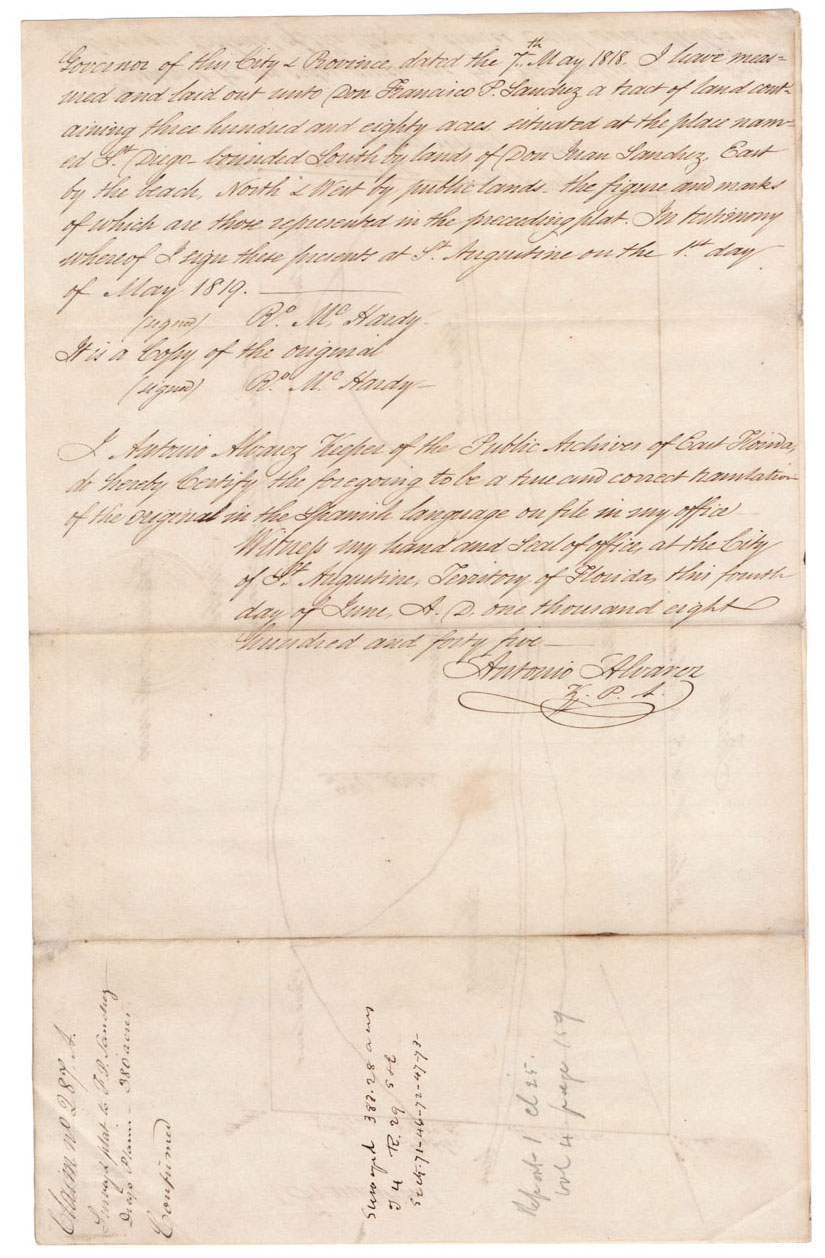 Governor of this City & Province, dated the 7th May 1818. I have meas=
ured and laid out unto Don Francisco P. Sanchez a tract of land cont-
aining three hundred and eighty acres situated at the place nam-
ed St. Diego - bounded South by lands of Don Juan Sanchez, East
by the beach, North & West by public lands. the figure and marks
of which are those represented in the preceeding plat. In testimony
whereof I sign these presents at St. Augustine on the 1st day
of May 1819.
(signed) Ro. Mc. Hardy.
It is a Copy of the original
(signed) Ro. Mc Hardy-
I Antonio Alvarez Keeper of the Public Archives of East Florida,
do hereby Certify the foregoing to be a true and correct translation
of the original in the Spanish language on file in my office
Witness my hand and Seal of office, at the City
of St. Augustine, Territory of Florida, this fourth
day of June, A. D. one thousand eight
hundred and forty five-
Antonio Alvarez
K. P. A.
Claim no 287. A.
Survey & plat to F. P. Sanchez
Diego Plains - 380 acres
Confirmed
Surveyed 382.28 acres
T 4 R. 29 S+E
Sects. 71-46-72-47-73-
Report-1 Cl 25.
Vol 4 page 159